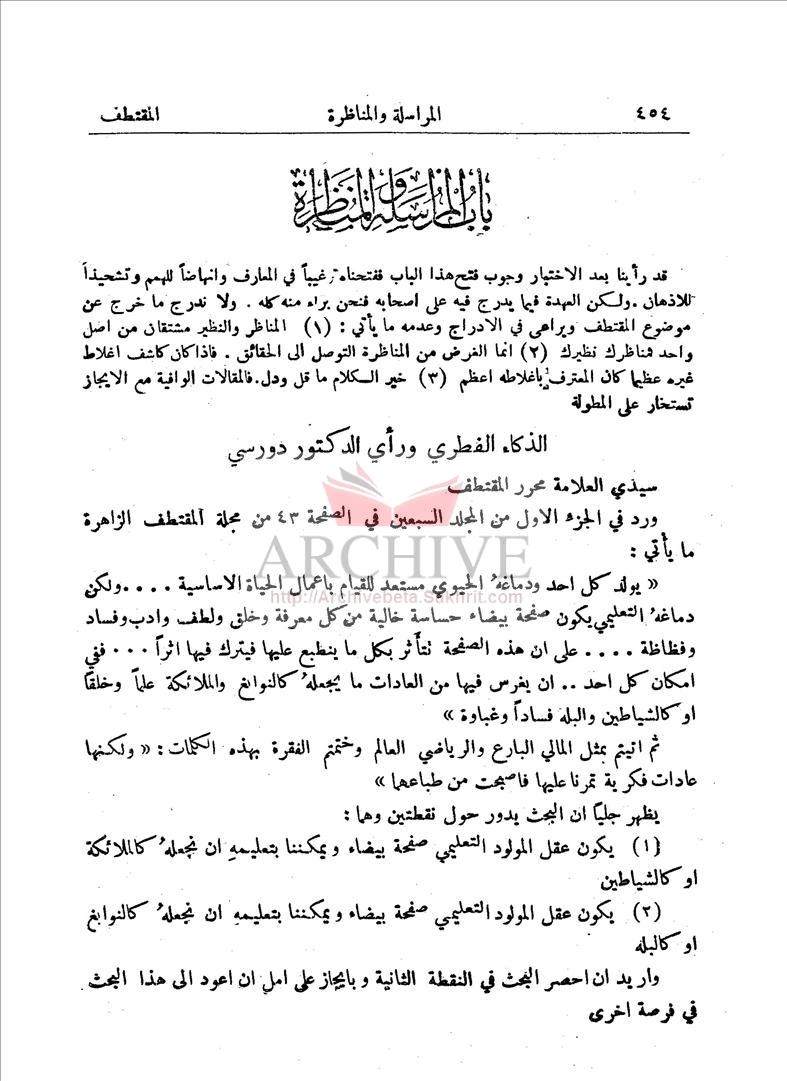 ٤٥٤ المراسلة والمناظرة المقتطف
باب المراسلة والمناظرة
قد رأينا بعد الاختبار وجوب فتح هذا الباب ففتحناه ترغيباً في المعارف وانهاضاً للهمم وتشحيذاً
للاذهان .ولكن العهدة فيما يدرج فيه على اصحابه فنحن براء منه كله . ولا ندرج ما خرج عن
موضوع المقتطف ويراعى في الادراج وعدمه ما يأتي : (١) المناظر والنظير مشتقان من اصل
واحد فمناظرك نظيرك (٢) انما الغرض من المناظرة التوصل الى الحقائق . فاذا كان كاشف اغلاط
غيره عظيما كان المعترف باغلاطه اعظم (٣) خير الكلام ما قل ودل.فالمقالات الوافية مع الايجاز
تستخار على المطولة
الذكاء الفطري ورأي الدكتور دورسي
سيدي العلامة محرر المقتطف
ورد في الجزء الاول من المجلد السبعين في الصفحة ٤٣ من مجلة المقتطف الزاهرة
ما يأتي :
« يولد كل احد ودماغهُ الحيوي مستعد للقيام باعمال الحياة الاساسية ....ولكن
دماغهُ التعليمي يكون صفحة بيضاء حساسة خالية من كل معرفة وخلق ولطف وادب وفساد
وفظاظة .... على ان هذه الصفحة تتأثر بكل ما ينطبع عليها فيترك فيها اثراً ... ففي
امكان كل احد .. ان يغرس فيها من العادات ما يجعلهُ كالنوابغ والملائكة علماً وخلقاً
او كالشياطين والبله فساداً وغباوة »
ثم اتيتم بمثل المالي البارع والرياضي العالم وختمتم الفقرة بهذه الكلمات : « ولكنها
عادات فكرية تمرنا عليها فاصبحت من طباعها »
يظهر جلياً ان البحث يدور حول نقطتين وهما :
(١) يكون عقل المولود التعليمي صفحة بيضاء ويمكننا بتعليمهِ ان نجعلهُ كالملائكة
او كالشياطين
(٢) يكون عقل المولود التعليمي صفحة بيضاء ويمكننا بتعليمهِ ان نجعلهُ كالنوابغ
او كالبله
واريد ان احصر البحث في النقطة الثانية وبايجاز على امل ان اعود الى هذا البحث
في فرصة اخرى
ARCHIVE
http://Archivebeta.Sakhrit.com